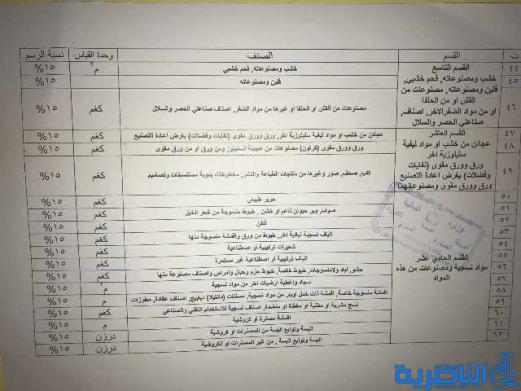 ت القسم الصنف وحدة القياس نسبة الرسم
٤٤ القسم التاسع خشب ومصنوعاته, فحم خشبي م٢ ١٥%
٤٥ خشب ومصنوعاته, فحم خشبي, فلين ومصنوعاته ١٥%
فلين ومصنوعاته, مصنوعات من
القش او من الحلفا
٤٦ او من مواد الضفر الاخر, اصناف مصنوعات من القش او الحلفا او غيرها من مواد الضفر, اصناف صناعتي الحصر والسلال كغم ١٥%
صناعتي الحصر والسلال
٤٧ القسم العاشر عجائن من خشب او مواد ليفية سليلوزية اخر ورق وورق مقوى (نفايات وفضلات) بغرض اعادة التصنيع كغم ١٥%
٤٨ عجائن من خشب او مواد ليفية ورق وورق مقوى (كرتون) مصنوعات من عجينة السليلوز ومن ورق او من ورق مقوى كغم ١٥%
سليلوزية اخر
ورق وورق مقوى (نفايات
٤٩ وفضلات) بغرض اعادة التصنيع كتب, صحف, صور وغيرها من منتجات الطباعة والنشر, مخطوطات يدوية مستنسخات وتصاميم كغم ١٥%
ورق وورق مقوى ومصنوعاتهما
٥٠ حرير طبيعي كغم ١٥%
٥١ صوف, وبر حيوان ناعم او خشن, خيوط منسوجة من شعر الخيل كغم ١٥%
٥٢ قطن كغم ١٥%
٥٣ الياف نسجية نباتية اخر, خيوط من ورق واقمشة منسوجة منها كغم ١٥%
٥٤ القسم الحادي عشر شعيرات تركيبية او اصطناعية كغم ١٥%
٥٥ مواد نسجية ومصنوعات من هذه الياف تركيبية او اصطناعية غير مستمرة كغم ١٥%
٥٦ المواد حشو, لباد ولامنسوجات, خيوط خاصة, خيوط حزم وحبال وامراس واصناف مصنوعة منها كغم ١٥%
٥٧ سجاد واغطية ارضيات اخر من مواد نسجية م ١٥%
٥٨ اقمشة منسوجة خاصة, اقمشة ذات خمل اوبر من مواد نسجية, مسننات (دانتيلا) ديابيج, اصناف عقادة, مطرزات م ١٥%
٥٩ نسج مشربة او مطلية او مغطاة او منضدة, اصناف نسجية للاستخدام التقني والصناعي كغم ١٥%
٦٠ اقمشة مصنرة او كروشية م ١٥%
٦١ البسة وتوابع البسة من المصنرات او كروشية درزن ١٥%
٦٢ البسة وتوابع البسة, من غير المصنرات او الكروشية درزن ١٥%
الناصرية